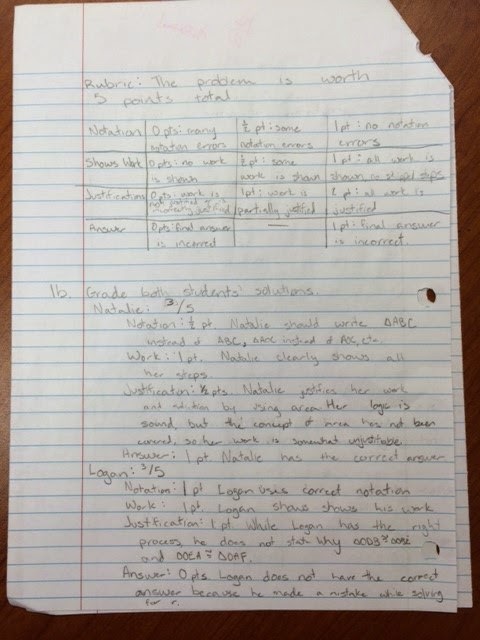 Rubric: The problem is worth
5 points total
Notation | 0 pts: many notation errors | ½ pt: some notation errors | 1 pt: no notation errors
Shows Work | 0 pts: no work is shown | ½ pt: some work is shown | 1 pt: all work is shown, no skipped steps
Justifications | 0 pts: work is not justified or is incorrectly justified | 1 pt: work is partially justified | 2 pt: all work is justified
Answer | 0 pts: final answer is incorrect | — | 1 pt: final answer is incorrect.
1b. Grade both students' solutions.
Natalie: 3/5
Notation: ½ pt. Natalie should write △ABC
instead of ABC, △AOC instead of AOC, etc.
Work: 1 pt. Natalie clearly shows all
her steps.
Justification: ½ pts. Natalie justifies her work
and solution by using area. Her logic is
sound, but the concept of area has not been
covered, so her work is somewhat unjustifiable.
Answer: 1 pt. Natalie has the correct answer
Logan: 3/5
Notation: 1 pt Logan uses correct notation
Work: 1 pt. Logan shows shows his work
Justification: 1 pt. While Logan has the right
process, he does not state why
and
Answer: 0 pts. Logan does not have the correct
answer because he made a mistake while solving
for r.